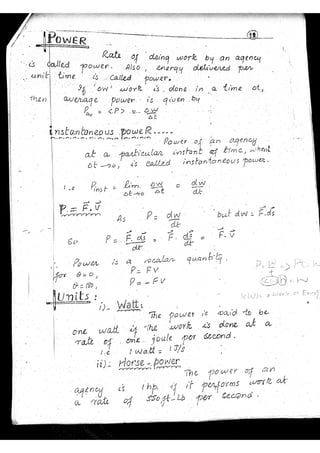 POWER
18
Rate of doing work by an agency
is called power. Also, energy delivered per
unit time is called power.
If 'ΔW' work is done in a time Δt,
then average power is given by
Pav = <P> = ΔW/Δt
instantaneous poweR.....
Power of an agency
at a particular instant of time, when
Δt→0, is called instantaneous power.
i.e Pinst = lim Δt→0 ΔW/Δt = dw/dt
P = F⃗.v⃗
As P = dw/dt but dw = F⃗.ds⃗
So P = F⃗.ds⃗/dt = F⃗.ds⃗/dt = F⃗.v⃗
Power is a scalar quantity.
for θ=0, P = FV
θ=180, P = -FV
Units:
i)- Watt:
The power is said to be
one watt if the work is done at a
rate of one joule per second.
i.e 1 watt = 1 J/s
ii)- Horse-power
The power of an
agency is 1 hp if it performs work at
a rate of 550 ft-lb per second.